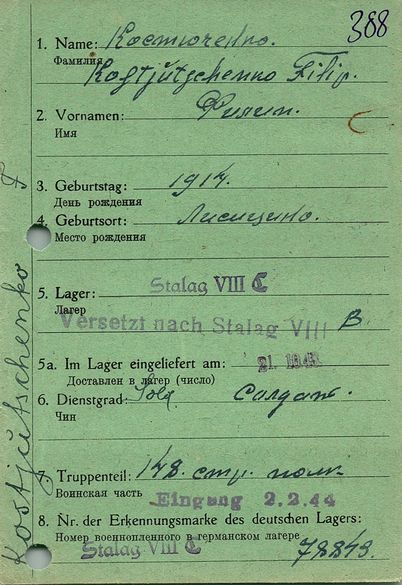 388
1. Name: Костюченко.
Фамилия
Kostjutschenko Filip.
2. Vornamen: Филип.
Имя
3. Geburtstag: 1914.
День рождения
4. Geburtsort: Лисицино.
Место рождения
5. Lager: Stalag VIII C
Лагер
Versetzt nach Stalag VIII B
5a. Im Lager eingeliefert am:
Доставлен в лагер (число)
6. Dienstgrad: Sold Солдат.
Чин
7. Truppenteil: 148. стр. полк
Воинская часть Eingang 2.2.44
8. Nr. der Erkennungsmarke des deutschen Lagers:
Номер военнопленного в германском лагере
Stalag VIII C 78848.
Kostjutschenko F